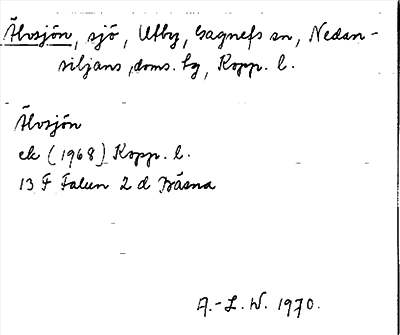 Älvsjön, sjö, Utby, Gagnefs sn, Nedan-
siljans, doms. tg, Kopp. l.
Älvsjön
ek (1968) Kopp. l.
13 F Falun 2 d Båsna
A.-L. W. 1970.